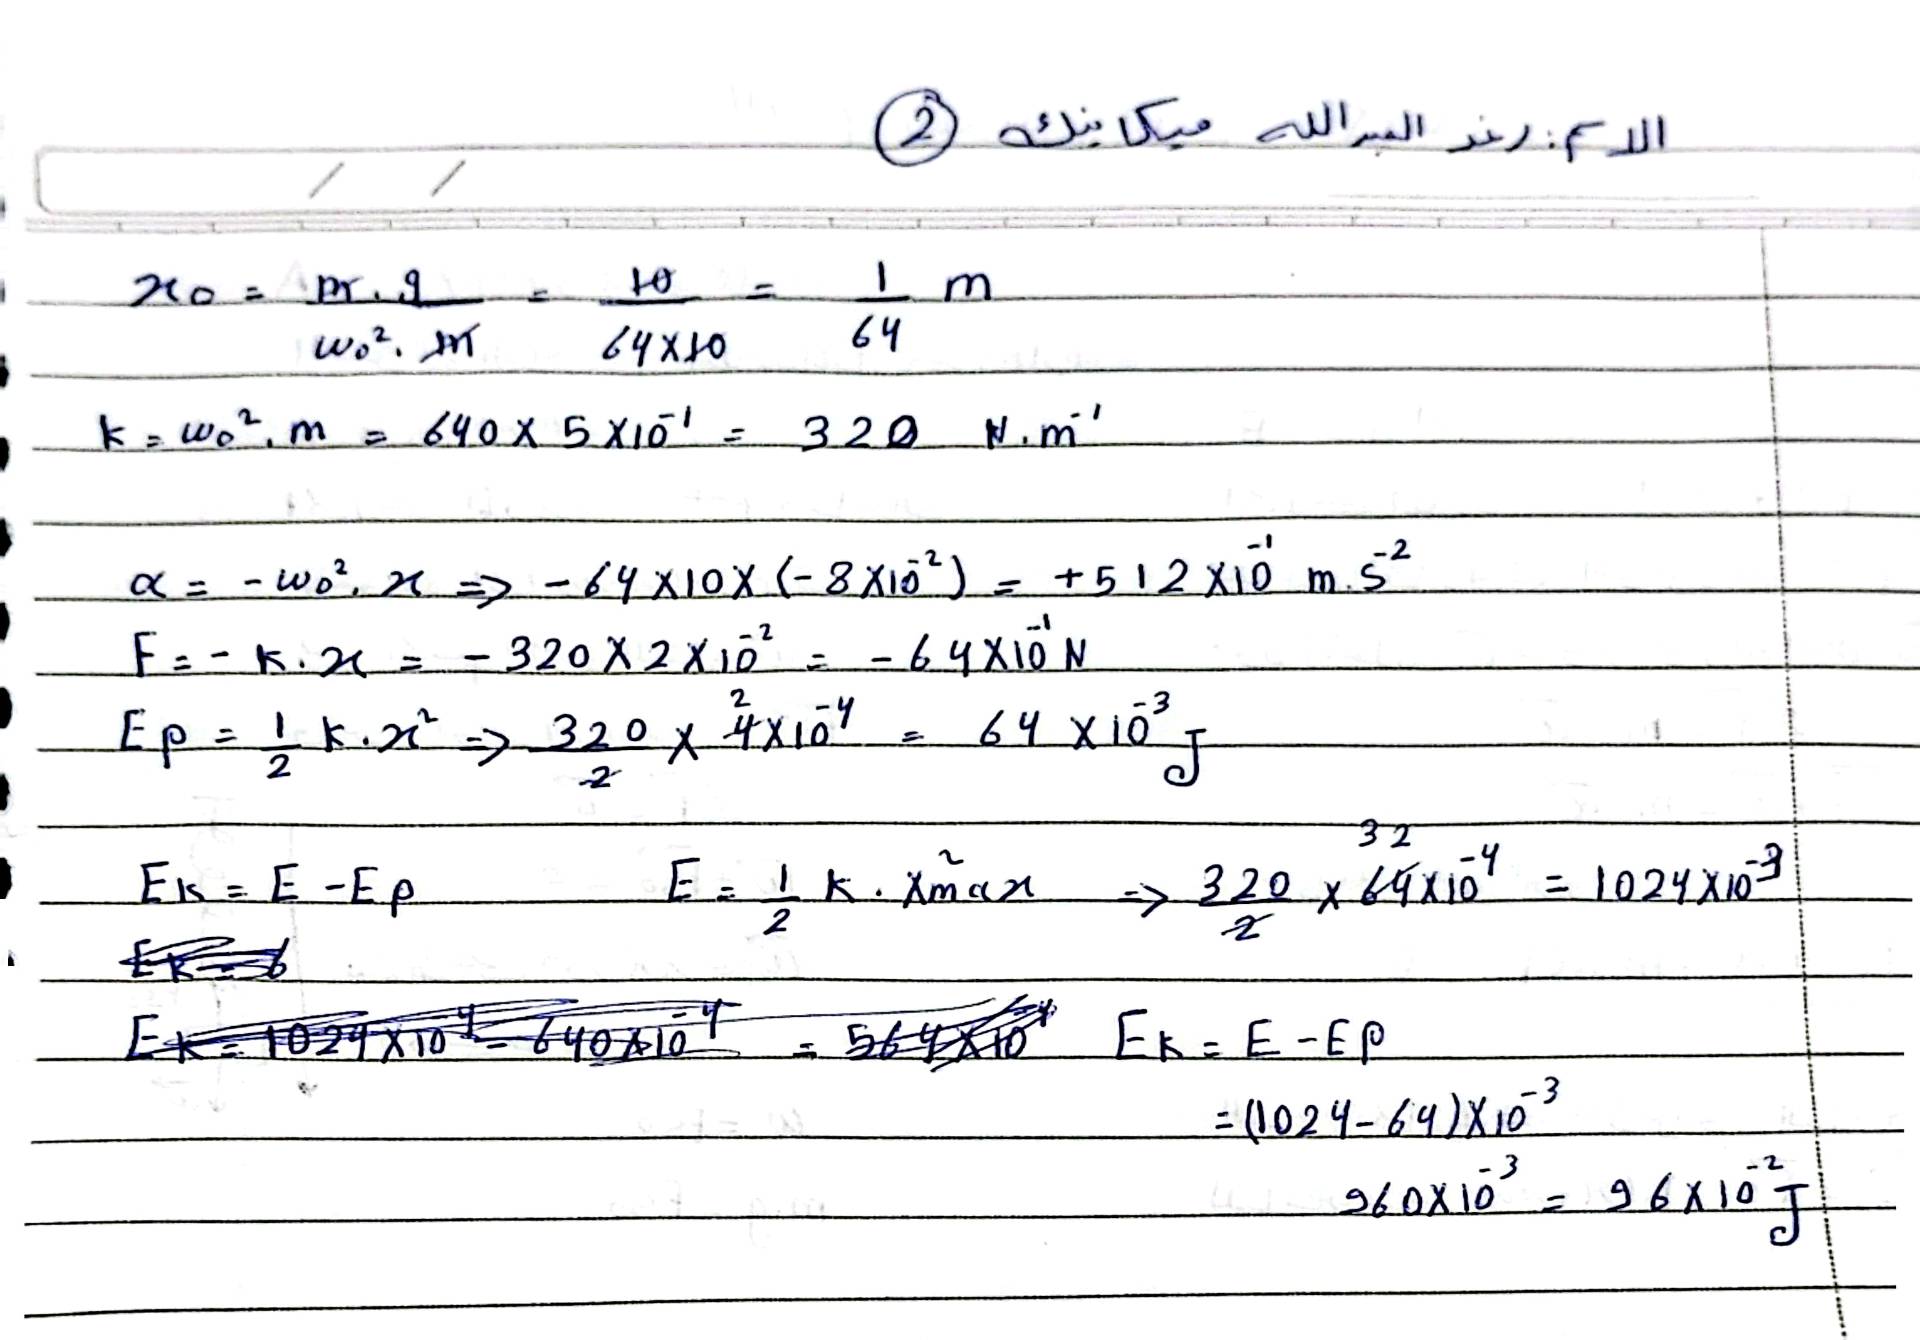 الاسم: رغد العبدالله ميكانيك ②
x₀ = m.g / ω₀².m = 10 / 64×10 = 1/64 m
k = ω₀².m = 640 × 5×10⁻¹ = 320 N.m⁻¹
α = -ω₀².x => -64×10×(-8×10⁻²) = +512×10⁻¹ m.s⁻²
F = -k.x = -320×2×10⁻² = -64×10⁻¹ N
Ep = 1/2 k.x² => 320/2 × 4×10⁻⁴ = 64×10⁻³ J
Ek = E - Ep E = 1/2 k.X²max => 320/2 × 64×10⁻⁴ = 1024×10⁻³
Ek = E - Ep
= (1024-64)×10⁻³
960×10⁻³ = 96×10⁻² J